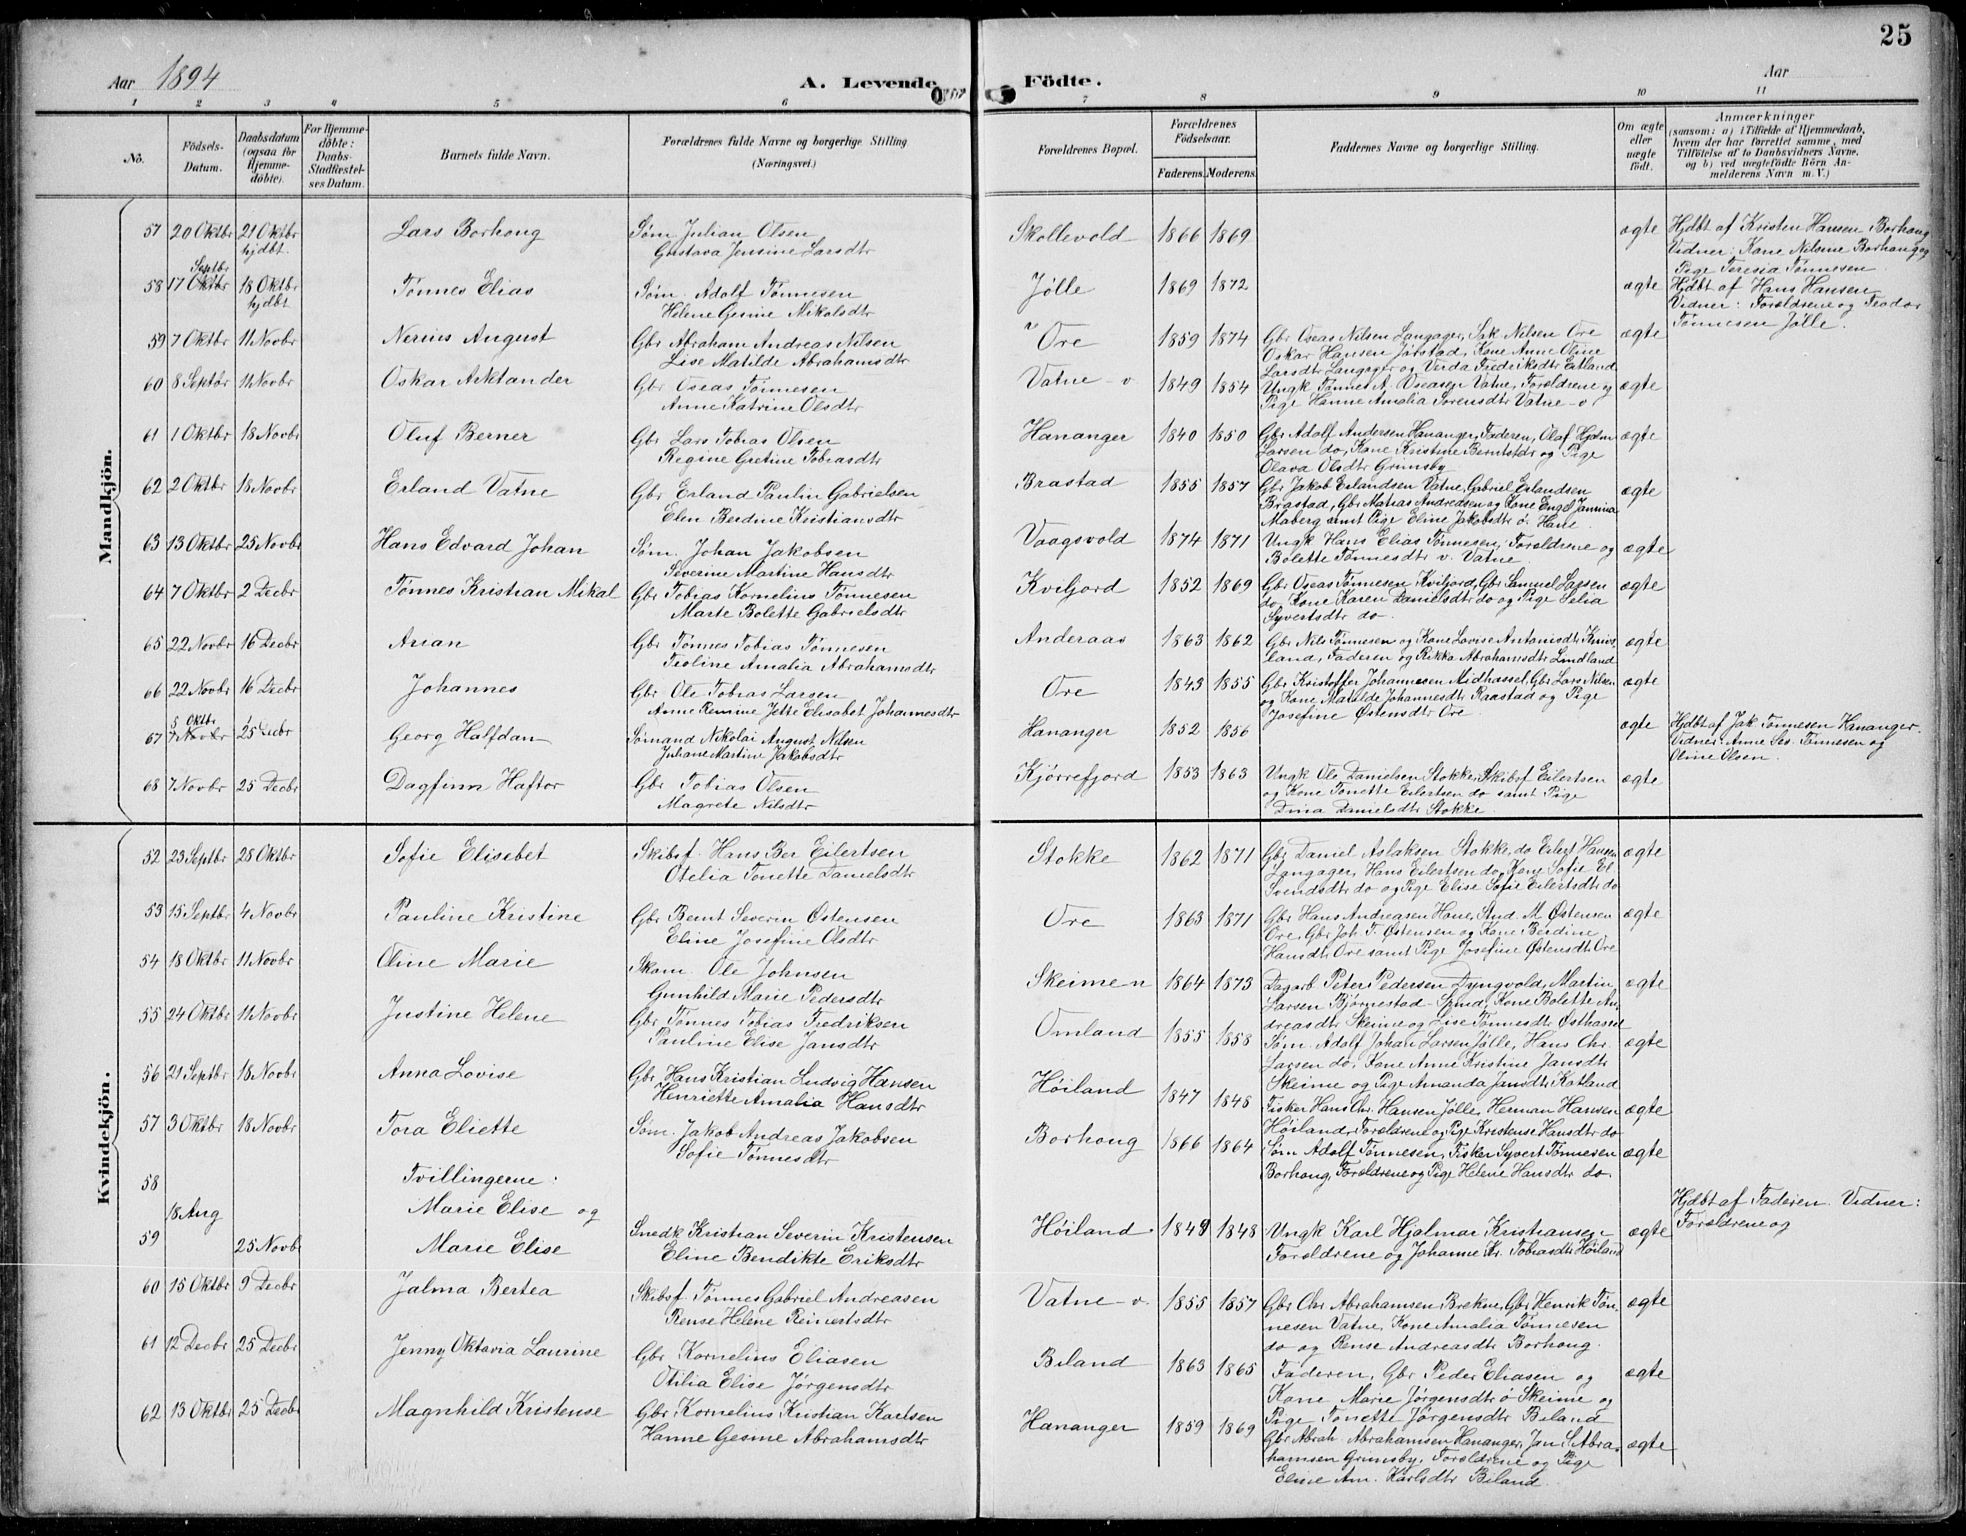 25
Aar 1894
A. Levende
Födte.
Aar
1 2 3 4 5 6 7 8 9 10 11
No.
Födsels-Datum.
Daabsdatum (ogsaa for Hjemme-döbte).
For Hjemme-döbte: Daabs-Stadfæstel-ses Datum.
Barnets fulde Navn.
Forældrenes fulde Navne og borgerlige Stilling (Næringsvei.)
Forældrenes Bopæl.
Forældrenes Födselsaar.
Faderens. Moderens.
Faddernes Navne og borgerlige Stilling.
Om ægte eller uægte födt.
Anmærkninger (saasom: a) i Tilfælde af Hjemmedaab, hvem der har forrettet samme, med Tilföielse af to Daabsvidners Navne, og b) ved uægtefödte Börn Anmelderens Navn m. V.)
Mandkjön.
57 20 Oktbr 21 Oktbr hjdbt. Lars Borhong Søm. Julian Olsen Gustava Jensine Larsdtr Skollevold 1866 1869 ægte Hjdbt af Kristen Hansen Borhong Vidner: Kone Nilsine Borhong og Pige Teresia Tønnesen
58 17 Septbr Oktbr 18 Oktbr hjdbt Tønnes Elias Søm. Adolf Tønnesen Helene Gesine Nikolsdtr Jølle 1869 1872 ægte Hjdbt af Hans Hansen Vidner: Forældrene og Teodor Tønnesen Jølle.
59 7 Oktbr 11 Novbr Nerius August Gbr Abraham Andreas Nilsen Lise Matilde Abrahamsdtr Ore 1859 1874 Gbr Oseas Nilsen Langager, Sak Nilsen Ore Oskar Hansen Jørstad, Kone Anne Oline Larsdtr Langager og Verda Fredriksdtr Eitland ægte
60 8 Septbr 11 Novbr Oskar Arktander Gbr Oseas Tønnesen Anne Katrine Olsdtr Vatne v 1849 1854 Ungk Tønnes A. Oseasen Vatne, Forældrene og Pige Hanne Amalia Sorensdtr Vatne v ægte
61 1 Oktbr 18 Novbr Oluf Berner Gbr Lars Tobias Olsen Regine Gretine Tobiasdtr Hananger 1840 1850 Gbr Adolf Andersen Hananger, Faderen, Olaf Hjalm Larsen do, Kone Kristine Berntsdtr og Pige Olava Olsdtr Grimsby ægte
62 2 Oktbr 18 Novbr Erland Vatne Gbr Erland Paulin Gabrielsen Elen Berdine Kristiansdtr Brastad 1855 1857 Gbr Jakob Erlandsen Vatne, Gabriel Erlandsen Brastad, Gbr Matias Andreasen og Kone Eng. Janina Maberg samt Pige Eline Jakobsdtr ö. Hane ægte
63 13 Oktbr 25 Novbr Hans Edvard Johan Søm. Johan Jakobsen Severine Martine Hansdtr Vaagsvold 1874 1871 Ungk Hans Elias Tønnesen, Forældrene og Bolette Tønnesdtr v. Vatne ægte
64 7 Oktbr 2 Decbr Tønnes Kristian Mikal Gbr Tobias Kornelius Tønnesen Marte Bolette Gabrielsdtr Kviljord 1852 1869 Gbr Oseas Tønnesen Kviljord, Gbr Samuel Larsen do, Kone Karen Danielsdtr do og Pige Selia Syvertsdtr do. ægte
65 22 Novbr 16 Decbr Arian Gbr Tønnes Tobias Tønnesen Teoline Amalia Abrahamsdtr Anderaas 1863 1862 Gbr Nils Tønnesen og Kone Lovise Antonsdtr land, Faderen og Rikka Abrahamsdtr Lindland ægte
66 22 Novbr 16 Decbr Johannes Gbr Ole Tobias Larsen Anne Remine Jette Elisabet Johannesdtr Ore 1843 1855 Gbr Kristoffer Johannesen Midhassel, Gbr Lars Nilsen og Kone Matilde Johannesdtr Raastad og Pige Josefine Østensdtr Ore ægte
67 5 Oktbr 7 Novbr 25 Decbr Georg Halfdan Sømand Nikolai August Nilsen Juliane Martine Jakobsdtr Hananger 1852 1856 ægte Hjdbt af Jak Tønnesen Hananger. Vidner: Anne Ses. Tønnesen og Oline Olsen.
68 7 Novbr 25 Decbr Dagfinn Haftor Gbr Tobias Olsen Magrete Nilsdtr Kjørrefjord 1853 1863 Ungk Ole Danielsen Stokke, Skibsf Eilertsen og Kone Tonette Eilertsen do samt Pige Dina Danielsdtr Stokke ægte
Kvindekjön.
52 23 Septbr 28 Oktbr Sofie Elisebet Skibsf. Hans Ber Eilertsen Otelia Tonette Danielsdtr Stokke 1862 1871 Gbr Daniel Aslaksen Stokke, do Eilert Hansen Langager, Hans Eilertsen do, Kone Sofie El. Svendsdtr do og Pige Elise Sofie Eilertsdtr do ægte
53 15 Septbr 4 Novbr Pauline Kristine Gbr Bernt Severin Østensen Eline Josefine Olsdtr Ore 1863 1871 Gbr Hans Andreasen Hane, Stud. M Østensen Ore, Gbr Joh. T. Østensen og Kone Berdine Hansdtr Ore samt Pige Josefine Østensdtr Ore ægte
54 18 Oktbr 11 Novbr Oline Marie Skom. Ole Johnsen Gunhild Marie Pedersdtr Skeimen 1864 1873 Dagarb Peter Pedersen Dyngvold, Martin Larsen Bjørnestad Spind, Kone Bolette Andreasdtr Skeime og Lise Tønnesdtr Østhassel ægte
55 24 Oktbr 11 Novbr Justine Helene Gbr Tønnes Tobias Fredriksen Pauline Elise Jansdtr Omland 1855 1858 Søm. Adolf Johan Larsen Jølle, Hans Chr. Larsen do, Kone Anne Kristine Jansdtr Skeime og Pige Amanda Jansdtr Katland ægte
56 21 Septbr 18 Novbr Anna Lovise Gbr. Hans Kristian Ludvig Hansen Henriette Amalia Hansdtr Høiland 1847 1848 Fisker Hans Chr. Hansen Jølle, Herman Hansen Høiland, Forældrene og Pige Kristense Hansdtr do ægte
57 3 Oktbr 18 Novbr Tora Eliette Søm. Jakob Andreas Jakobsen Sofie Tønnesdtr Borhong 1866 1864 Søm Adolf Tønnesen, Fisker Syvert Tønnesen Borhong, Forældrene og Pige Helene Hansdtr do. ægte
58 Tvillingerne:
18 Aug Marie Elise og Hjdbt af Faderen. Vidner: Forældrene og
59 25 Novbr Marie Elise Snedk Kristian Severin Kristensen Eline Bendikte Eriksdtr Høiland 1848 1848 Ungk Karl Hjalmar Kristiansen Forældrene og Johanne Kr. Tobiasdtr Høiland ægte
60 15 Oktbr 9 Decbr Jalma Bertea Skibsf. Tønnes Gabriel Andreasen Rense Helene Reinertsdtr Vatne v. 1855 1857 Gbr Chr Abrahamsen Brekne, Gbr Henrik Tønnesen Vatne, Kone Amalia Tønnesen do og Rense Andreasdtr Borhong. ægte
61 12 Decbr 25 Decbr Jenny Oktavia Laurine Gbr Kornelius Eliasen Otilia Elise Jørgensdtr Biland 1863 1865 Faderen, Gbr Peder Eliasen og Kone Marie Jørgensdtr ö Skeime og Pige Tonette Jørgensdtr Biland ægte
62 13 Oktbr 25 Decbr Magnhild Kristense Gbr Kornelius Kristian Karlsen Hanne Gesine Abrahamsdtr Hananger 1859 1869 Gbr Abrah. Abrahamsen Hananger, Jan S. Abrahamsen Grimsby, Forældrene og Pige Eline Am. Karlsdtr Biland ægte